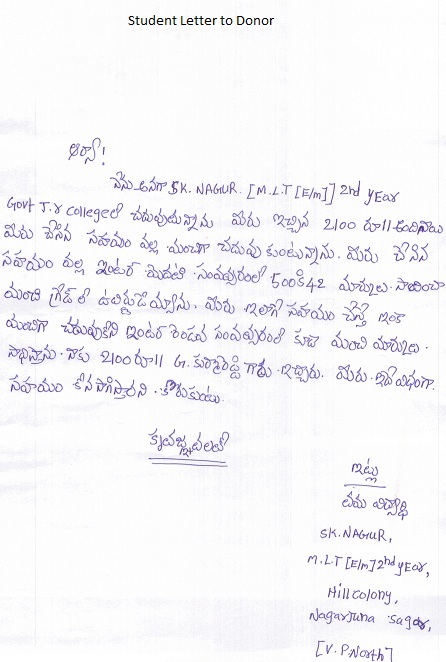 Student Letter to Donor
ఆర్యా!
నేను అనగా SK. NAGUR. [M.L.T [E/m]] 2nd yEar
Govt J.r collegeలో చదువుతున్నాను మీరు ఇచ్చిన 2100 రూ॥ అందినాయి
మీరు చేసిన సహాయం వల్ల మంచిగా చదువు కుంటున్నాను. మీరు చేసిన
సహాయం వల్ల ఇంటర్ మొదటి సంవత్సరంలో 500కి 42 మార్కులు సాధించా
మంచి గ్రేడ్ లో ఉత్తీర్ణుడైయ్యాను. మీరు ఇలాగే సహాయం చేస్తే ఇంకా
మంచిగా చదువుకొని ఇంటర్ రెండవ సంవత్సరంలో కూడా మంచి మార్కులు.
సాధిస్తాను. నాకు 2100 రూ॥ G. కుర్మారెడ్డి గారు ఇచ్చారు. మీరు ఇదేవిధంగా
సహాయం కొనసాగిస్తారని కోరుకుంటు.
కృతజ్ఞతలతో
ఇట్లు
తమ విద్యార్థి
SK.NAGUR,
M.L.T [E/m] 2nd yEar,
Hill colony,
Nagarjuna sagar,
[V.P.North]